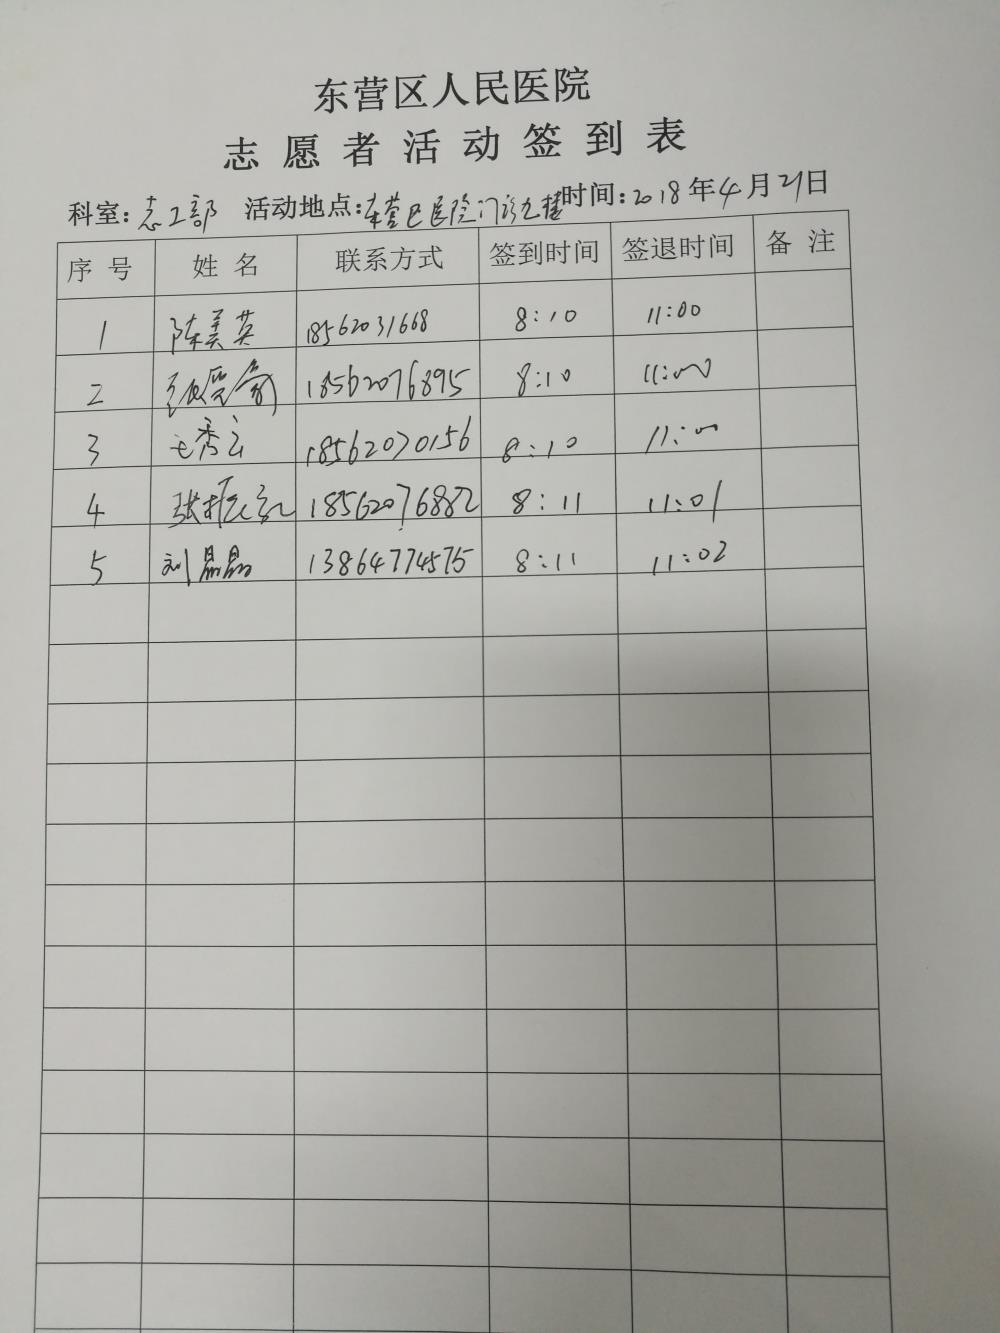 东营区人民医院
志愿者活动签到表
科室：志工部 活动地点：东营区医院门诊大楼 时间：2018年4月21日
序号 姓名 联系方式 签到时间 签退时间 备注
1 陈美英 18562031668 8:10 11:00
2 18562076895 8:10 11:00
3 秀云 18562070156 8:10 11:00
4 张振 18562076882 8:11 11:01
5 刘晶晶 13864774575 8:11 11:02